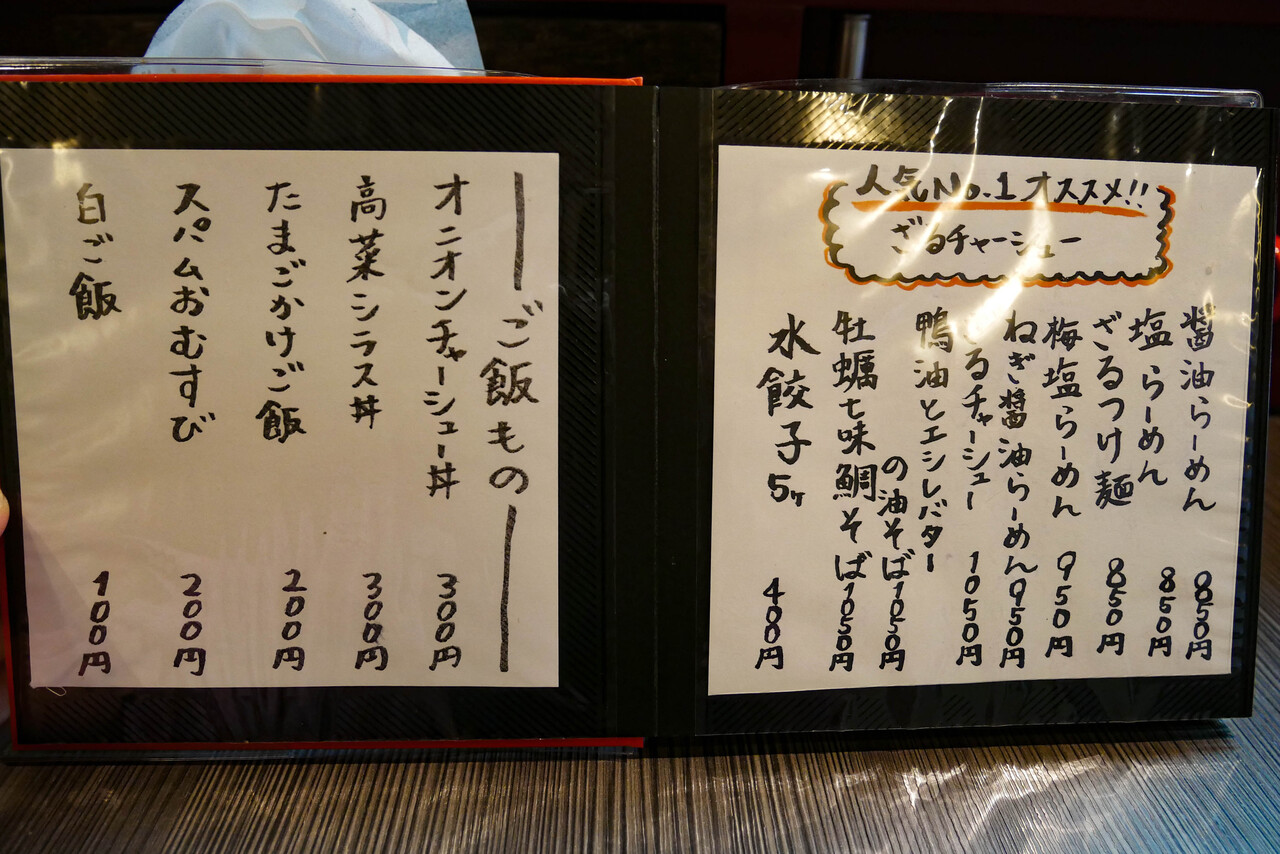 人気No.1オススメ!!
ざるチャーシュー
醤油らーめん 850円
塩らーめん 850円
ざるつけ麺 850円
梅塩らーめん 950円
ねぎ醤油らーめん 950円
ざるチャーシュー 1050円
鴨油とエシレバター
の油そば 1050円
牡蠣七味鯛そば 1050円
水餃子5ヶ 400円
ご飯もの
オニオンチャーシュー丼 300円
高菜シラス丼 300円
たまごかけご飯 200円
スパムおむすび 200円
白ご飯 100円